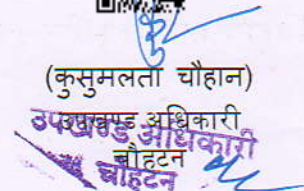 (कुसुमलता चौहान)
उपखण्ड अधिकारी
चौहटन
उपखण्ड अधिकारी
चौहटन